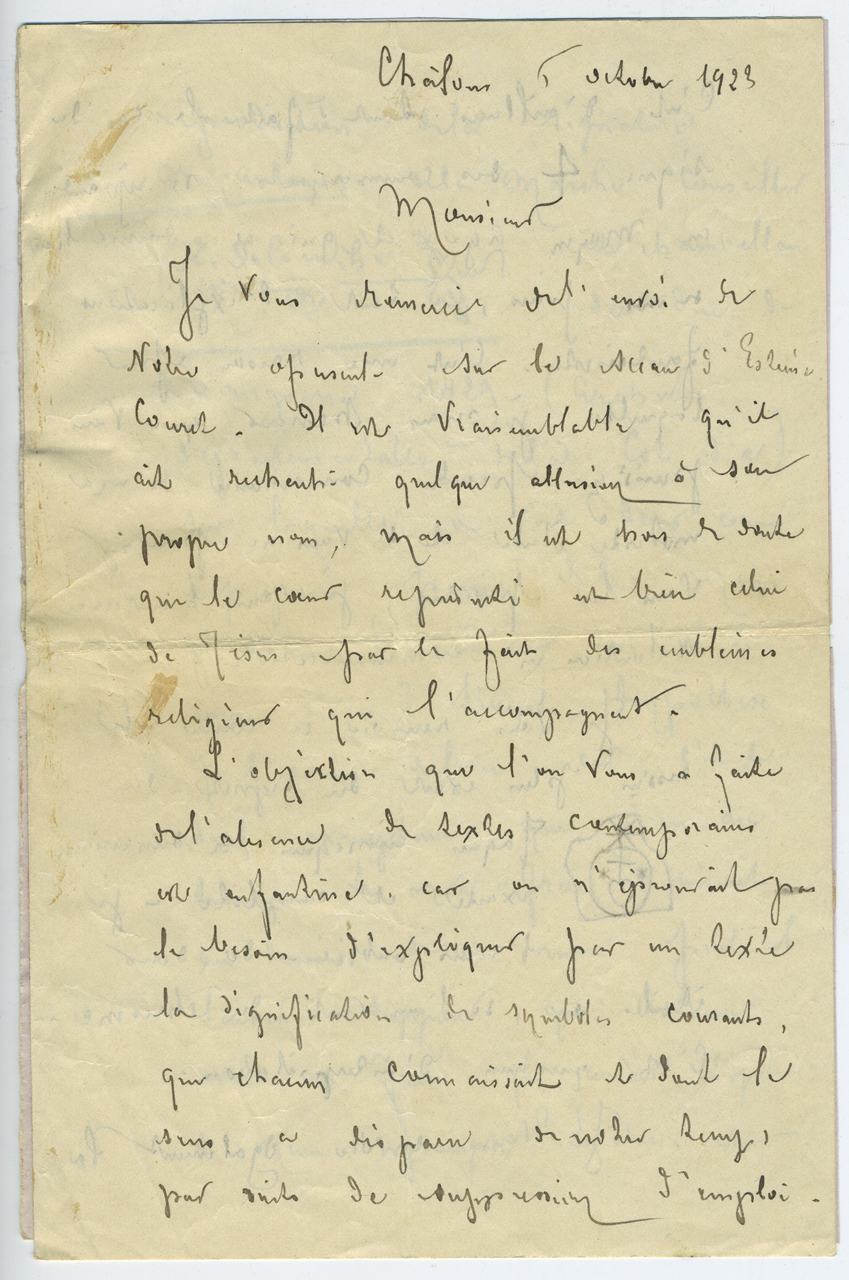 Châlons 5 octobre 1923
Monsieur
Je vous remercie de l'envoi de
Votre opuscule sur le sceau d'Estème
Couret. Il est vraisemblable qu'il
ait quelque allusion à son
propre nom, mais il est hors de doute
que le cœur représenté est bien celui
de Jésus par le fait des emblèmes
religieux qui l'accompagnent.
L'objection que l'on vous a faite
de l'absence de textes contemporains
est enfantine. car on n'éprouvait pas
le besoin d'expliquer par un texte
la signification de symboles courants,
que chacun connaissait et dont le
sens a disparu de notre temps
par suite de suppression d'emploi.